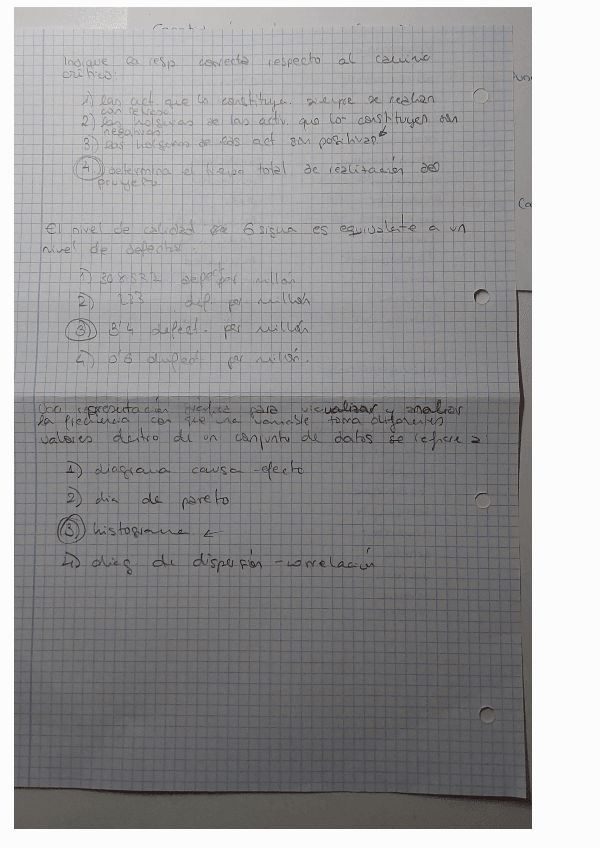 Indique la resp correcta respecto al camino
crítico:
1) las act. que lo constituyen siempre se realizan
con retraso
2) las holguras de las activ. que lo constituyen son
negativas
3) las holguras de las act son positivas
4) determina el tiempo total de realización del
proyecto
El nivel de calidad de 6 sigma es equivalente a un
nivel de defectos
1) 308532 defect por millón
2) 233 def por millón
3) 3'4 defect. por millón
4) 0'6 defect por millón.
Una representación gráfica para visualizar y analizar
la frecuencia con que una variable toma diferentes
valores dentro de un conjunto de datos se refiere a
1) diagrama causa-efecto
2) dia de pareto
3) histograma ←
4) diag de dispersión - correlación